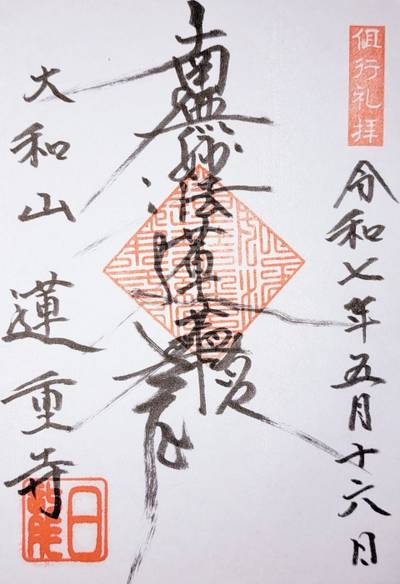 但行礼拝
令和七年五月十六日
南無妙法蓮華経
大和山 蓮重寺